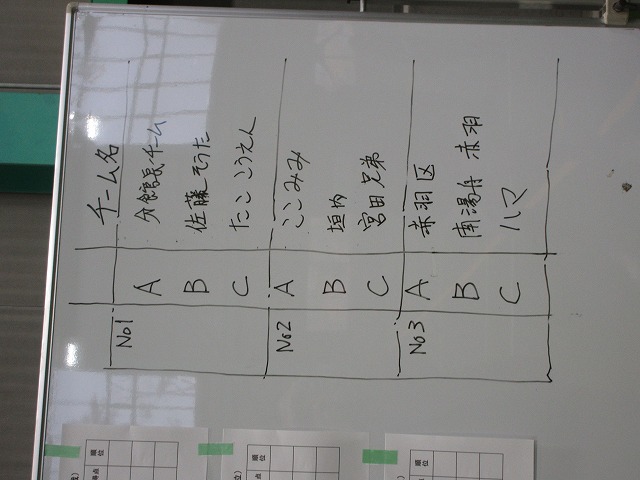 チーム名
No1 A 分館長チーム
B 佐藤そうた
C たこ こうえん
No2 A ここみみ
B 垣内
C 宮田兄弟
No3 A 赤羽区
B 南湯舟 赤羽
C ハマ
順位
順位
順位